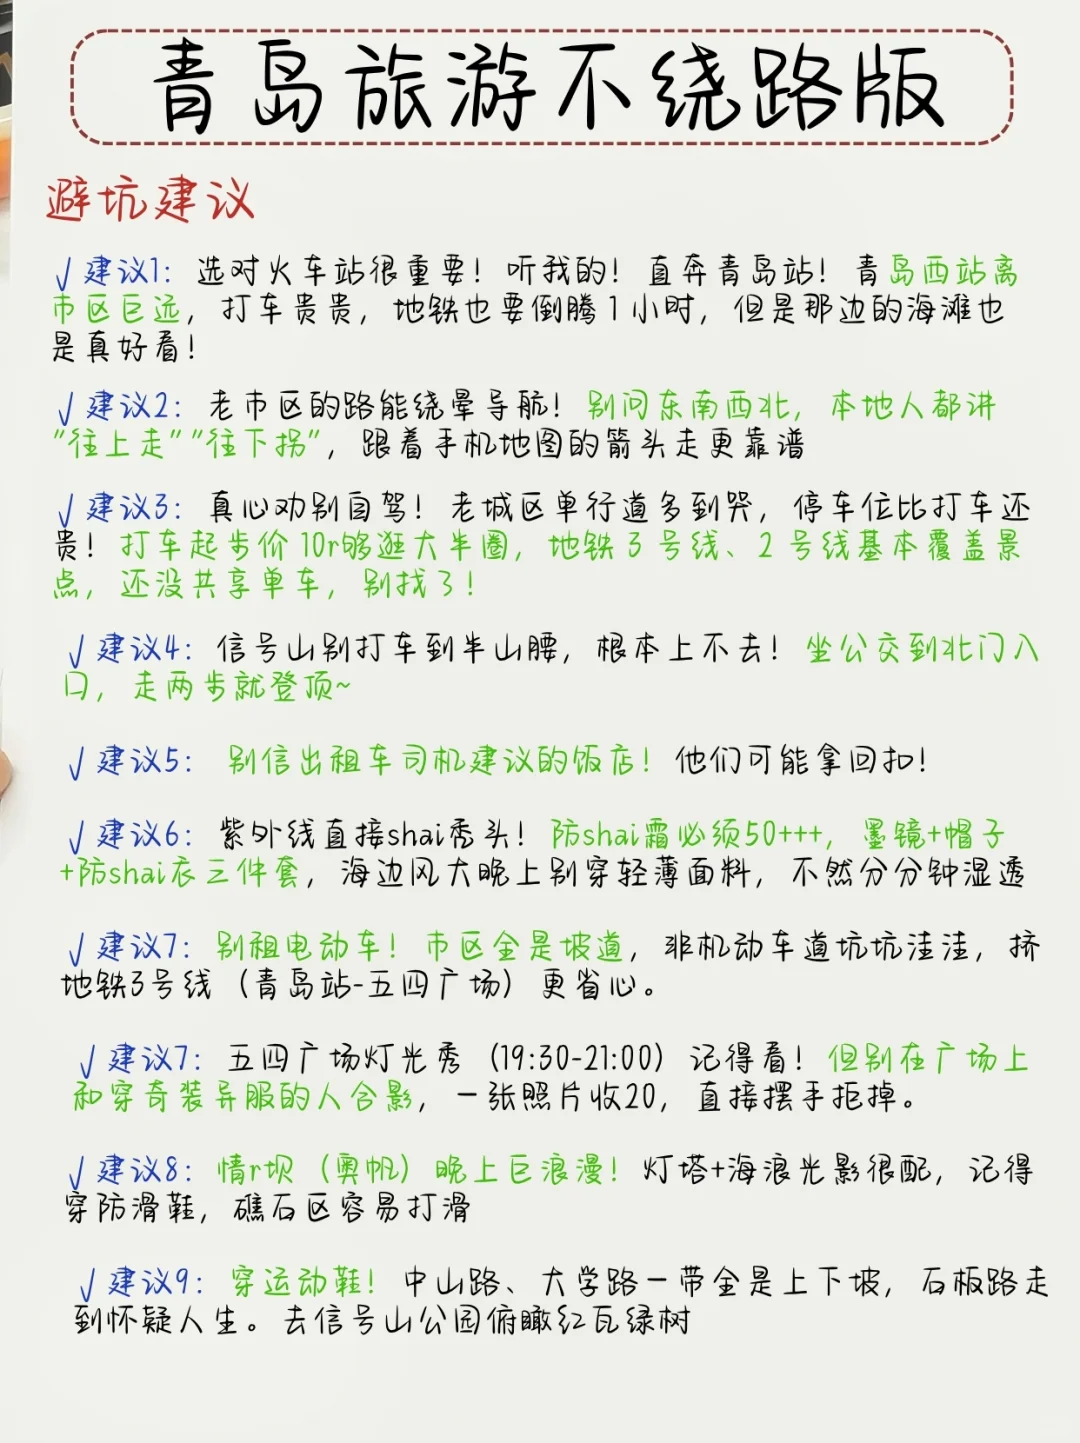 青岛旅游不绕路版
避坑建议
√建议1：选对火车站很重要！听我的！直奔青岛站！青岛西站离
市区巨远，打车贵贵，地铁也要倒腾1小时，但是那边的海滩也
是真好看！
√建议2：老市区的路能绕晕导航！别问东南西北，本地人都讲
"往上走""往下拐"，跟着手机地图的箭头走更靠谱
√建议3：真心劝别自驾！老城区单行道多到哭，停车位比打车还
贵！打车起步价10r够逛大半圈，地铁3号线、2号线基本覆盖景
点，还没共享单车，别找了！
√建议4：信号山别打车到半山腰，根本上不去！坐公交到北门入
口，走两步就登顶~
√建议5：别信出租车司机建议的饭店！他们可能拿回扣！
√建议6：紫外线直接shai秃头！防shai霜必须50+++，墨镜+帽子
+防shai衣三件套，海边风大晚上别穿轻薄面料，不然分分钟湿透
√建议7：别租电动车！市区全是坡道，非机动车道坑坑洼洼，挤
地铁3号线（青岛站-五四广场）更省心。
√建议7：五四广场灯光秀（19:30-21:00）记得看！但别在广场上
和穿奇装异服的人合影，一张照片收20，直接摆手拒掉。
√建议8：情r坝（奥帆）晚上巨浪漫！灯塔+海浪光影很配，记得
穿防滑鞋，礁石区容易打滑
√建议9：穿运动鞋！中山路、大学路一带全是上下坡，石板路走
到怀疑人生。去信号山公园俯瞰红瓦绿树